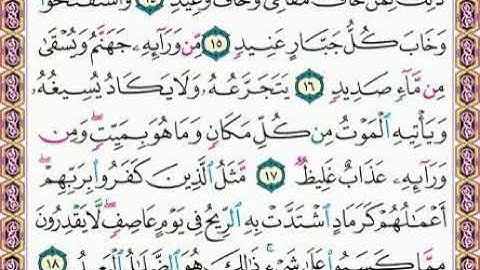 ذَٰلِكَ لِمَنْ خَافَ مَقَامِي وَخَافَ وَعِيدِ ١٤ وَاسْتَفْتَحُوا
وَخَابَ كُلُّ جَبَّارٍ عَنِيدٍ ١٥ مِّن وَرَآئِهِۦ جَهَنَّمُ وَيُسْقَىٰ
مِن مَّآءٍ صَدِيدٍ ١٦ يَتَجَرَّعُهُۥ وَلَا يَكَادُ يُسِيغُهُۥ
وَيَأْتِيهِ ٱلْمَوْتُ مِن كُلِّ مَكَانٍ وَمَا هُوَ بِمَيِّتٍۖ وَمِن
وَرَآئِهِۦ عَذَابٌ غَلِيظٌ ١٧ مَّثَلُ ٱلَّذِينَ كَفَرُوا۟ بِرَبِّهِمْۖ
أَعْمَٰلُهُمْ كَرَمَادٍ ٱشْتَدَّتْ بِهِ ٱلرِّيحُ فِى يَوْمٍ عَاصِفٍۖ لَّا يَقْدِرُونَ
مِمَّا كَسَبُوا۟ عَلَىٰ شَىْءٍۚ ذَٰلِكَ هُوَ ٱلضَّلَٰلُ ٱلْبَعِيدُ ١٨